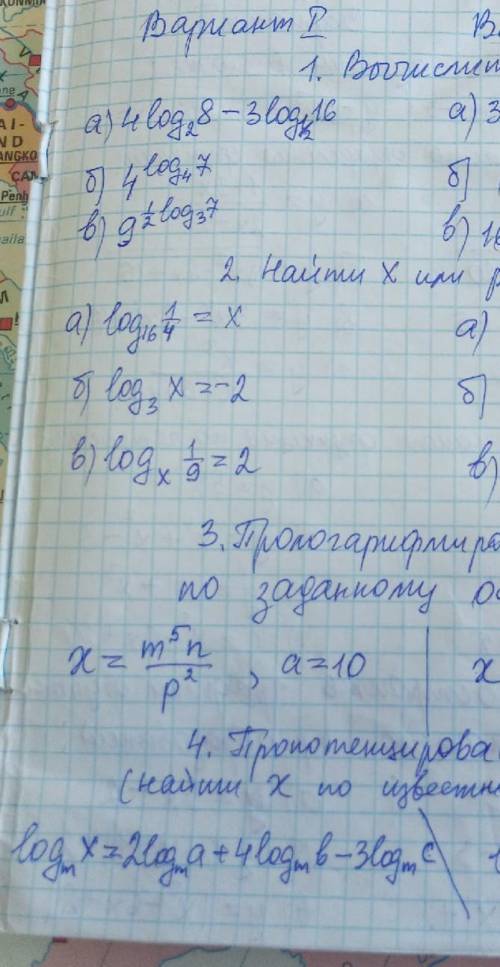 Вариант I В
1. Вычислит
а) 4log₂8 − 3log½16 а) 3
б) 4^(log₄7) б)
в) 9^(½log₃7) в) 16
2. Найти x или р
а) log₁₆ 1/4 = x а)
б) log₃ x = -2 б)
в) logₓ 1/9 = 2 в)
3. Прологарифмиров
по заданному ос
x = m⁵n/p², a=10 x
4. Пропотенцирова
(найти x по известн
logₘx=2logₘa+4logₘb−3logₘc